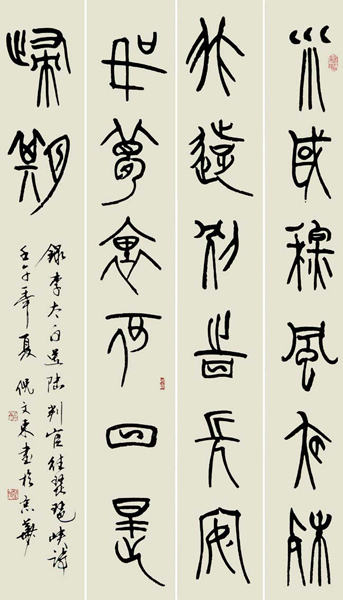 水國秋風夜殊
非遠別時長安
如夢裏何日是
歸期
錄李太白送陸判官往琵琶峽詩
壬午年夏倪文東書於京華